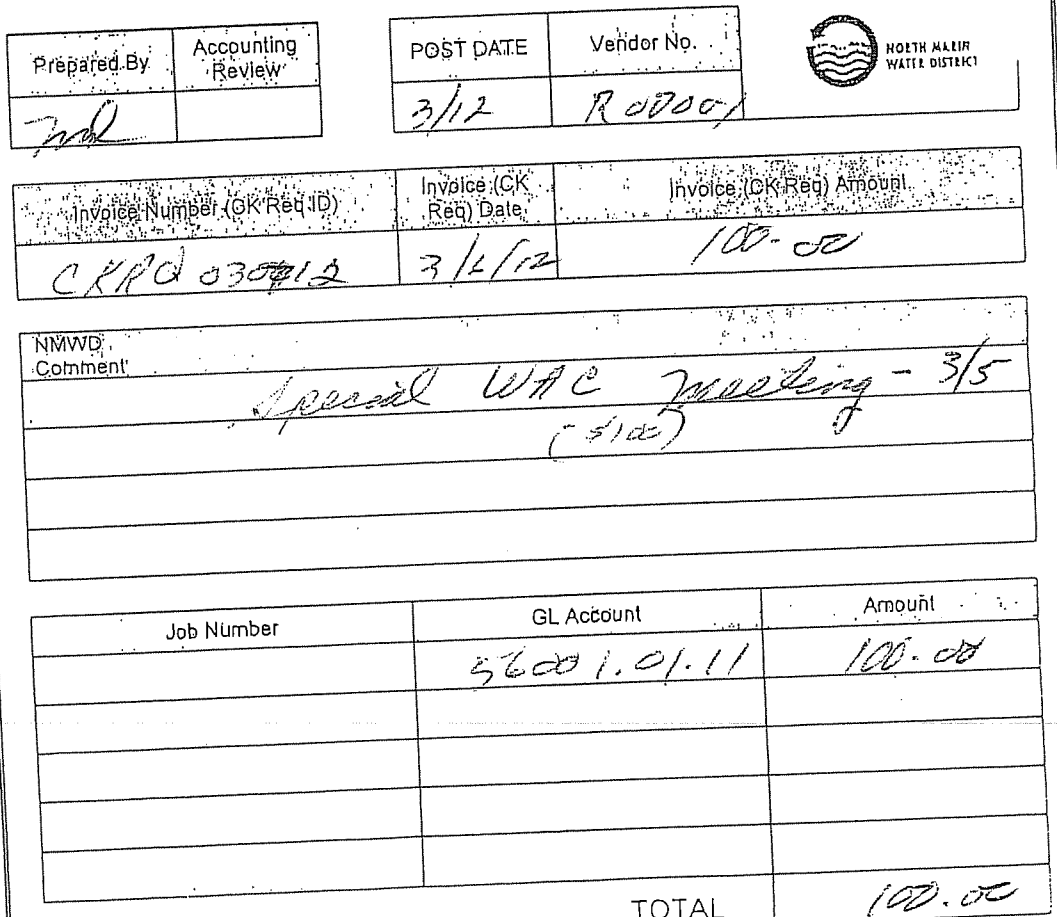 Prepared By
Accounting Review
POST DATE
Vendor No.
NORTH MARIN
WATER DISTRICT
3/12
R00001
Invoice Number (CK Req ID)
Invoice (CK Req) Date
Invoice (CK Req) Amount
CKRQ
100.00
NMWD
Comment
Special WAC Meeting - 3/5
($100)
Job Number
GL Account
Amount
56001.01.11
100.00
TOTAL
100.00